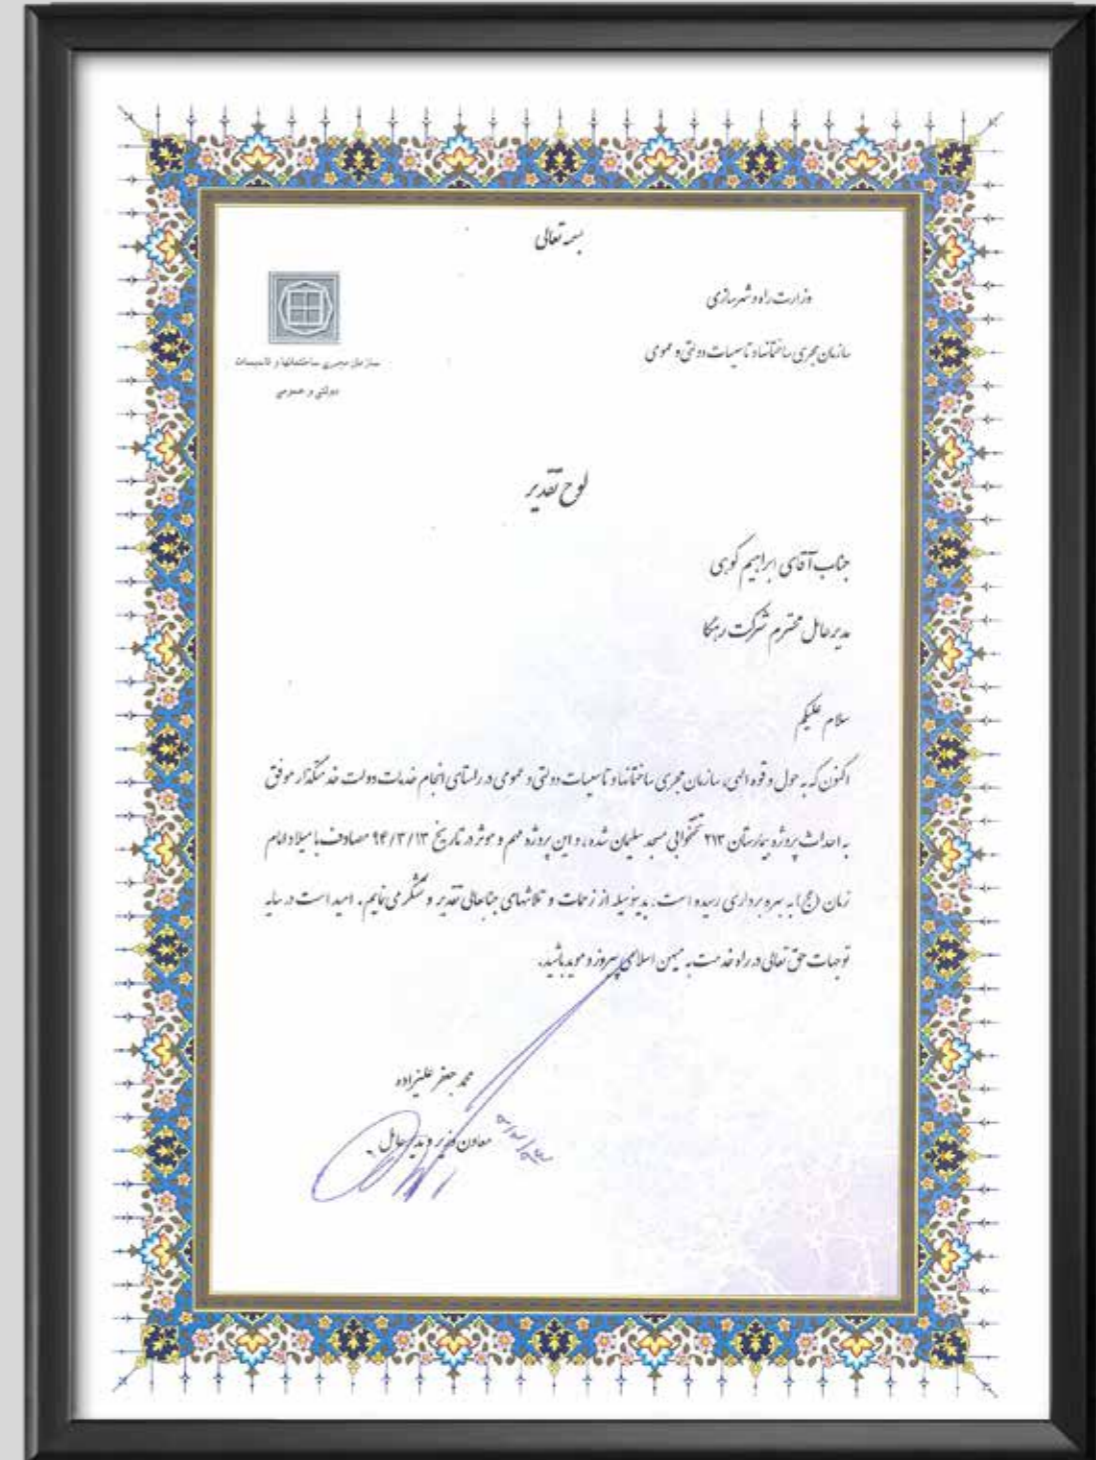 بسمه تعالی
وزارت راه و شهرسازی
سازمان مجری ساختمانها و تاسیسات دولتی و عمومی
سازمان مجری ساختمانها و تاسیسات
دولتی و عمومی
لوح تقدیر
جناب آقای ابراهیم کوهی
مدیرعامل محترم شرکت رهگا
سلام علیکم
اکنون که به حول و قوه الهی، سازمان مجری ساختمانها و تاسیسات دولتی و عمومی در راستای انجام خدمات دولت خدمتگذار موفق
به احداث پروژه بیمارستان ۲۱۳ تختخوابی مسجد سلیمان شده، و این پروژه مهم و موثر در تاریخ ۹۴/۳/۱۳ مصادف با میلاد امام
زمان (عج) به بهره برداری رسیده است. بدینوسیله از زحمات و تلاشهای جنابعالی تقدیر و تشکر می نمایم. امید است در سایه
توجهات حق تعالی در راه خدمت به میهن اسلامی پیروز و موید باشید.
محمد جعفر علیزاده
معاون وزیر و مدیر عامل